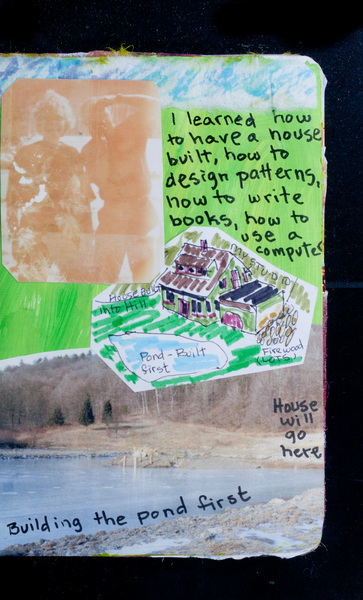 I learned how
to have a house
built, how to
design patterns,
how to write
books, how to
use a
computer
My STUDIO
House Built
Into Hill
Pond - Built
first
Firewood
(LOTS)
House
will
go
here
Building the pond first